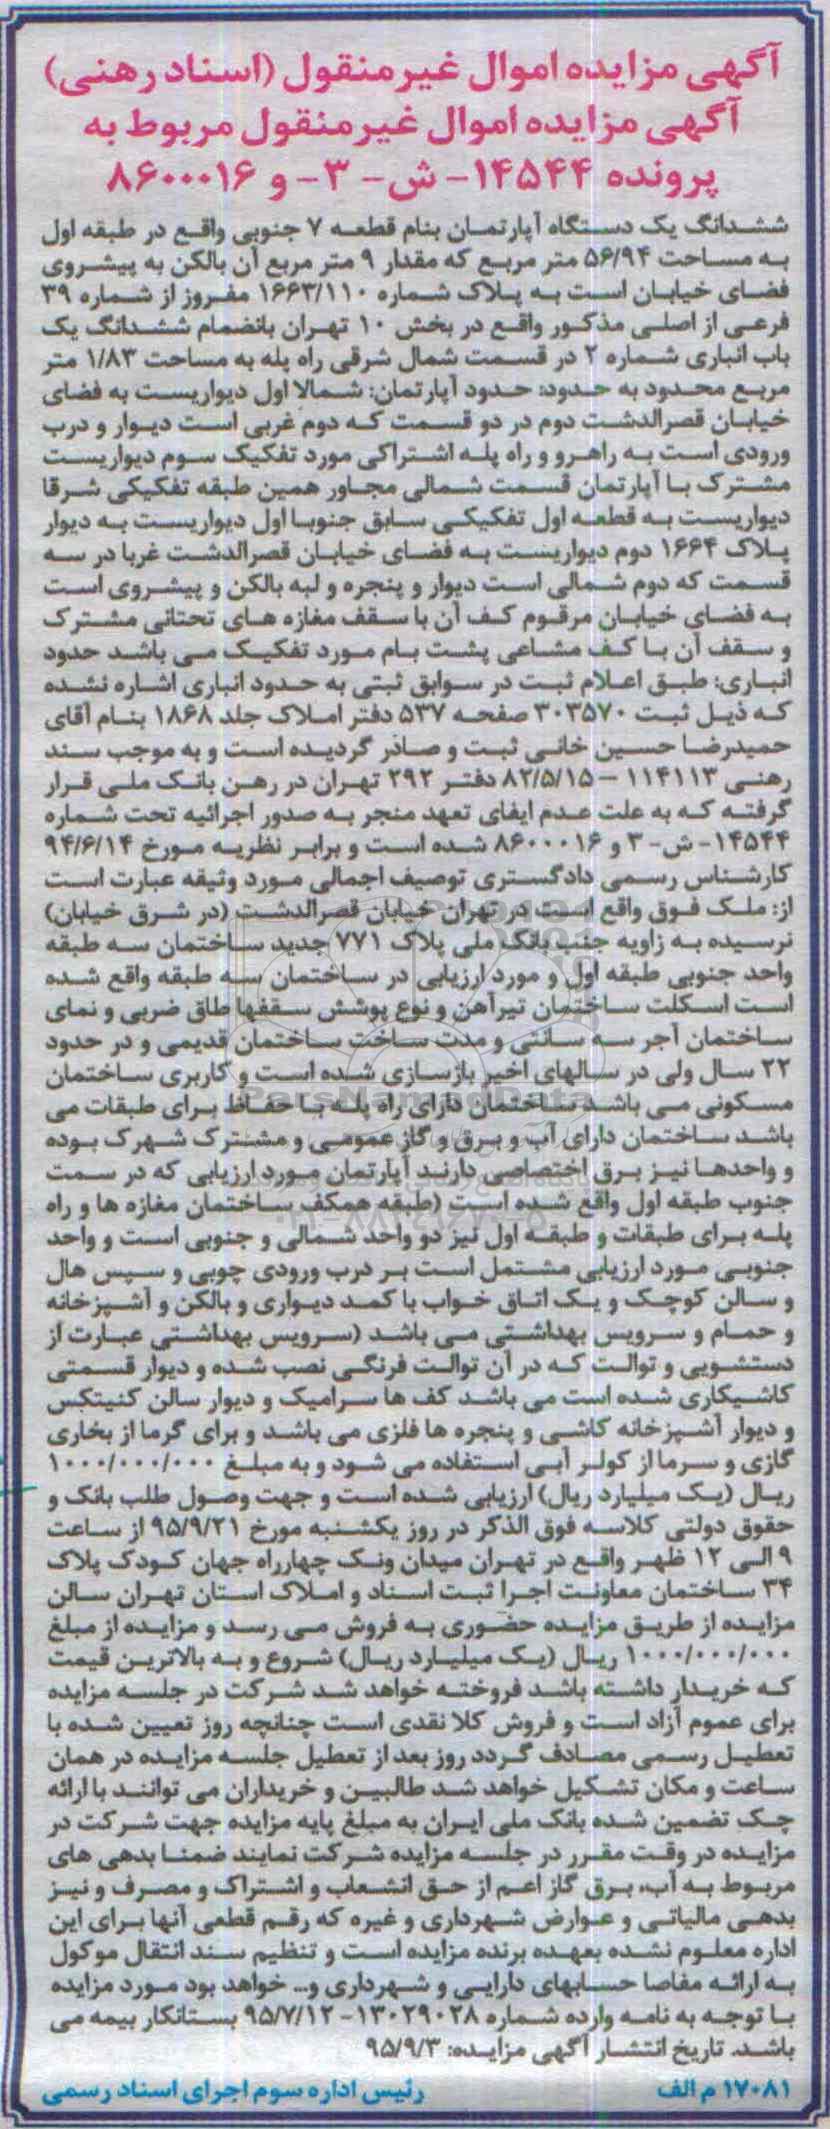 آگهی مزایده اموال غیرمنقول (اسناد رهنی)
آگهی مزایده اموال غیرمنقول مربوط به
پرونده ۱۴۵۴۴- ش- ۳- و ۸۶۰۰۰۱۶
ششدانگ یک دستگاه آپارتمان بنام قطعه ۷ جنوبی واقع در طبقه اول
به مساحت ۵۶/۹۴ متر مربع که مقدار ۹ متر مربع آن بالکن به پیشروی
فضای خیابان است به پلاک شماره ۱۶۶۳/۱۱۰ مفروز از شماره ۳۹
فرعی از اصلی مذکور واقع در بخش ۱۰ تهران بانضمام ششدانگ یک
باب انباری شماره ۲ در قسمت شمال شرقی راه پله به مساحت ۱/۸۳ متر
مربع محدود به حدود: حدود آپارتمان: شمالا اول دیواریست به فضای
خیابان قصرالدشت دوم در دو قسمت که دوم غربی است دیوار و درب
ورودی است به راهرو و راه پله اشتراکی مورد تفکیک سوم دیواریست
مشترک با آپارتمان قسمت شمالی مجاور همین طبقه تفکیکی شرقا
دیواریست به قطعه اول تفکیکی سابق جنوبا اول دیواریست به دیوار
پلاک ۱۶۶۴ دوم دیواریست به فضای خیابان قصرالدشت غربا در سه
قسمت که دوم شمالی است دیوار و پنجره و لبه بالکن و پیشروی است
به فضای خیابان مرقوم کف آن با سقف مغازه های تحتانی مشترک
و سقف آن با کف مشاعی پشت بام مورد تفکیک می باشد حدود
انباری: طبق اعلام ثبت در سوابق ثبتی به حدود انباری اشاره نشده
که ذیل ثبت ۳۰۳۵۷۰ صفحه ۵۳۷ دفتر املاک جلد ۱۸۶۸ بنام آقای
حمیدرضا حسین خانی ثبت و صادر گردیده است و به موجب سند
رهنی ۱۱۴۱۱۳ – ۸۲/۵/۱۵ دفتر ۲۹۲ تهران در رهن بانک ملی قرار
گرفته که به علت عدم ایفای تعهد منجر به صدور اجرائیه تحت شماره
۱۴۵۴۴- ش- ۳ و ۸۶۰۰۰۱۶ شده است و برابر نظریه مورخ ۹۴/۶/۱۴
کارشناس رسمی دادگستری توصیف اجمالی مورد وثیقه عبارت است
از: ملک فوق واقع است در تهران خیابان قصرالدشت (در شرق خیابان)
نرسیده به زاویه جنب بانک ملی پلاک ۷۷۱ جدید ساختمان سه طبقه
واحد جنوبی طبقه اول و مورد ارزیابی در ساختمان سه طبقه واقع شده
است اسکلت ساختمان تیرآهن و نوع پوشش سقفها طاق ضربی و نمای
ساختمان آجر سه سانتی و مدت ساخت ساختمان قدیمی و در حدود
۲۲ سال ولی در سالهای اخیر بازسازی شده است و کاربری ساختمان
مسکونی می باشد ساختمان دارای راه پله با حفاظ برای طبقات می
باشد ساختمان دارای آب و برق و گاز عمومی و مشترک شهرک بوده
و واحدها نیز برق اختصاصی دارند آپارتمان مورد ارزیابی که در سمت
جنوب طبقه اول واقع شده است (طبقه همکف ساختمان مغازه ها و راه
پله برای طبقات و طبقه اول نیز دو واحد شمالی و جنوبی است و واحد
جنوبی مورد ارزیابی مشتمل است بر درب ورودی چوبی و سپس هال
و سالن کوچک و یک اتاق خواب با کمد دیواری و بالکن و آشپزخانه
و حمام و سرویس بهداشتی می باشد (سرویس بهداشتی عبارت از
دستشویی و توالت که در آن توالت فرنگی نصب شده و دیوار قسمتی
کاشیکاری شده است می باشد کف ها سرامیک و دیوار سالن کنیتکس
و دیوار آشپزخانه کاشی و پنجره ها فلزی می باشد و برای گرما از بخاری
گازی و سرما از کولر آبی استفاده می شود و به مبلغ ۱۰۰۰/۰۰۰/۰۰۰
ریال (یک میلیارد ریال) ارزیابی شده است و جهت وصول طلب بانک و
حقوق دولتی کلاسه فوق الذکر در روز یکشنبه مورخ ۹۵/۹/۲۱ از ساعت
۹ الی ۱۲ ظهر واقع در تهران میدان ونک چهارراه جهان کودک پلاک
۳۴ ساختمان معاونت اجرا ثبت اسناد و املاک استان تهران سالن
مزایده از طریق مزایده حضوری به فروش می رسد و مزایده از مبلغ
۱۰۰۰/۰۰۰/۰۰۰ ریال (یک میلیارد ریال) شروع و به بالاترین قیمت
که خریدار داشته باشد فروخته خواهد شد شرکت در جلسه مزایده
برای عموم آزاد است و فروش کلا نقدی است چنانچه روز تعیین شده با
تعطیل رسمی مصادف گردد روز بعد از تعطیل جلسه مزایده در همان
ساعت و مکان تشکیل خواهد شد طالبین و خریداران می توانند با ارائه
چک تضمین شده بانک ملی ایران به مبلغ پایه مزایده جهت شرکت در
مزایده در وقت مقرر در جلسه مزایده شرکت نمایند ضمنا بدهی های
مربوط به آب، برق گاز اعم از حق انشعاب و اشتراک و مصرف و نیز
بدهی مالیاتی و عوارض شهرداری و غیره که رقم قطعی آنها برای این
اداره معلوم نشده بعهده برنده مزایده است و تنظیم سند انتقال موکول
به ارائه مفاصا حسابهای دارایی و شهرداری و... خواهد بود مورد مزایده
با توجه به نامه وارده شماره ۱۳۰۲۹۰۲۸- ۹۵/۷/۱۲ بستانکار بیمه می
باشد. تاریخ انتشار آگهی مزایده: ۹۵/۹/۳
۱۷۰۸۱ م الف رئیس اداره سوم اجرای اسناد رسمی
ParsNamadData